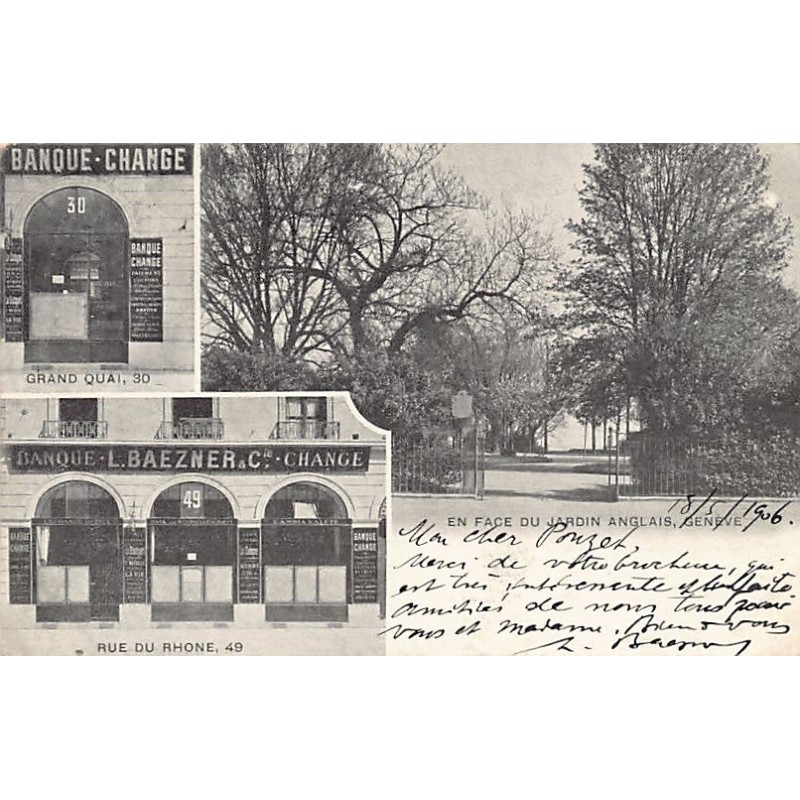 BANQUE · CHANGE
30
BANQUE
CHANGE
GRAND QUAI, 30
BANQUE · L. BAEZNER & Cie · CHANGE
49
RUE DU RHONE, 49
EN FACE DU JARDIN ANGLAIS, GENÈVE
18/5/1906.
Mon cher Pouzet,
Merci de votre brochure, qui
est très intéressante et bien faite.
Amitiés de nous tous pour
vous et madame. Bien à vous
L. Baezner